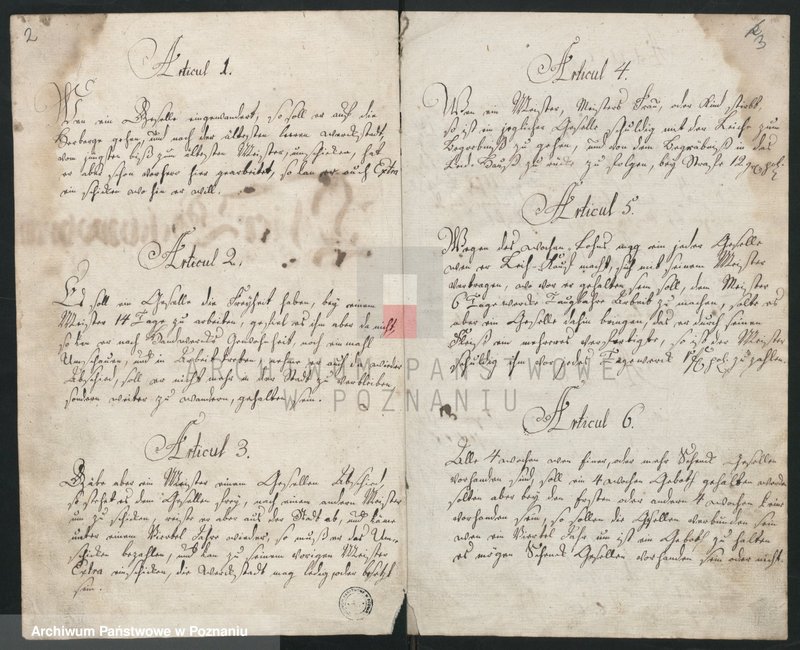 2
Articul 1.
Wen ein Geselle eingewandert, so soll er auf die
Herberge gehen, und nach der ältesten leeren werckstadt,
vom jüngsten biß zum ältesten Meister, umschicken, hat
er aber schon vorher hier gearbeitet, so kan er auch Extra
ein schicken wo hin er will.
Articul 2.
Es soll ein Geselle die Freyheit haben, bey einem
Meister 14 Tage zu arbeiten, gefiel es ihm aber da nicht,
so kan er nach Handwercks Gewohnheit, noch ein mahl
Umschauen, und in Arbeit tretten, nehme er auch da wieder
Abschied, soll er nicht mehr in der Stadt zu verbleiben
sondern weiter zu wandern, gehalten sein.
Articul 3.
Gäbe aber ein Meister einem Gesellen Abschied,
so stehet es dem Gesellen frey, nach einem andern Meister
um zu schicken, reiset er aber aus der Stadt ab, und käme
unter einem Viertel Jahre wieder, so muß er das Um-
schicken bezahlen, und kan zu seinem vorigen Meister
Extra einschicken, die Werckstadt mag ledig, oder besetzt
sein.
3
Articul 4.
Wen ein Meister, Meisters Frau, oder Kind stirbt,
so ist ein jeglicher Geselle schuldig mit der Leiche zum
Begräbniß zu gehen, und von dem Begräbniß in das
Leid-Hauß zu rück zu folgen, bey Strafe 12 gr. pol.
Articul 5.
Wegen des wochen-Lohns mag ein jeder Geselle
wen er Leih-Kauf macht, sich mit seinem Meister
vertragen, wo vor er gehalten sein soll, dem Meister
6 Tagewercke Arbeit zu machen, sollte es
aber ein Geselle dahin bringen, das er durch seinen
Fleiß ein mehreres verfertigte, so ist der Meister
schuldig ihm vor jedes Tagewerck pol. zu zahlen.
Articul 6.
Alle 4 wochen wen einer, oder mehr Schenck Gesellen
vorhanden sind, soll ein 4 wochen Geboth gehalten werden
solten aber bey den ersten oder andern 4 wochen keine
vorhanden sein, so sollen die Gesellen verbunden sein
wen ein Viertel Jahr um ist ein Geboth zu halten
es mögen Schenck Gesellen vorhanden sein oder nicht.
ARCHIWUM PAŃSTWOWE
W POZNANIU
Archiwum Państwowe w Poznaniu